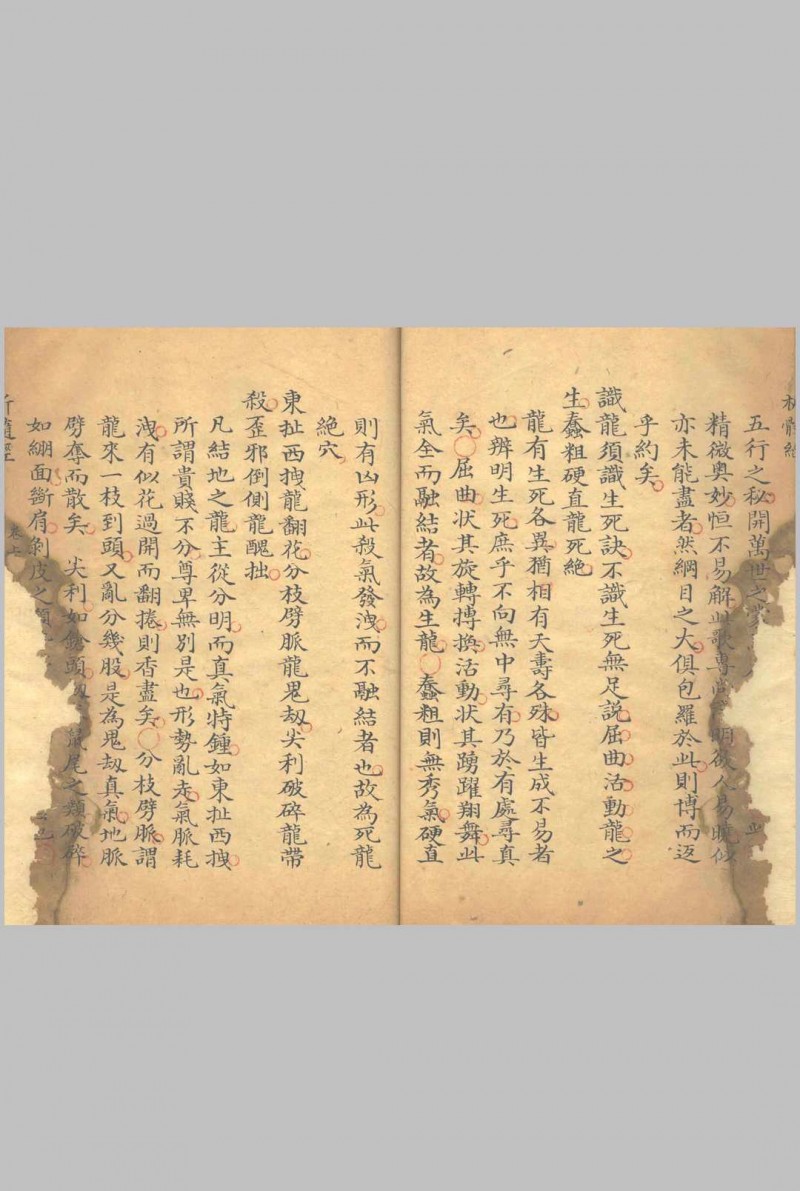 五行之秘開萬世之蒙
精微奧妙恒不易解此歌專尚明欲人易曉似
亦未能盡者然綱目之大俱包羅於此則博而返
乎約矣
識龍須識生死訣不識生死無足説屈曲活動龍之
生蠢粗硬直龍死絶
龍有生死各異猶相有夭壽各殊皆生成不易者
也辨明生死庶乎不向無中尋有乃於有處尋真
矣屈曲状其旋轉摶換活動状其踴躍翔舞此
氣全而融結者故為生龍蠢粗則無秀氣硬直
則有凶形此殺氣發洩而不融結者也故為死龍
絶穴
東扯西拽龍翻花分枝劈脈龍鬼刼尖利破碎龍帶
殺歪邪倒側龍醜拙
凡結地之龍主從分明而真氣特鍾如東扯西拽
所謂貴賤不分尊卑無別是也形勢亂走氣脈耗
洩有似花過開而翻捲則香盡矣分枝劈脈謂
龍來一枝到頭又亂分幾股是為鬼刼真氣地脈
劈奪而散矣尖利如鎗頭鼠尾之類破碎
如綳面斷肩剝皮之類